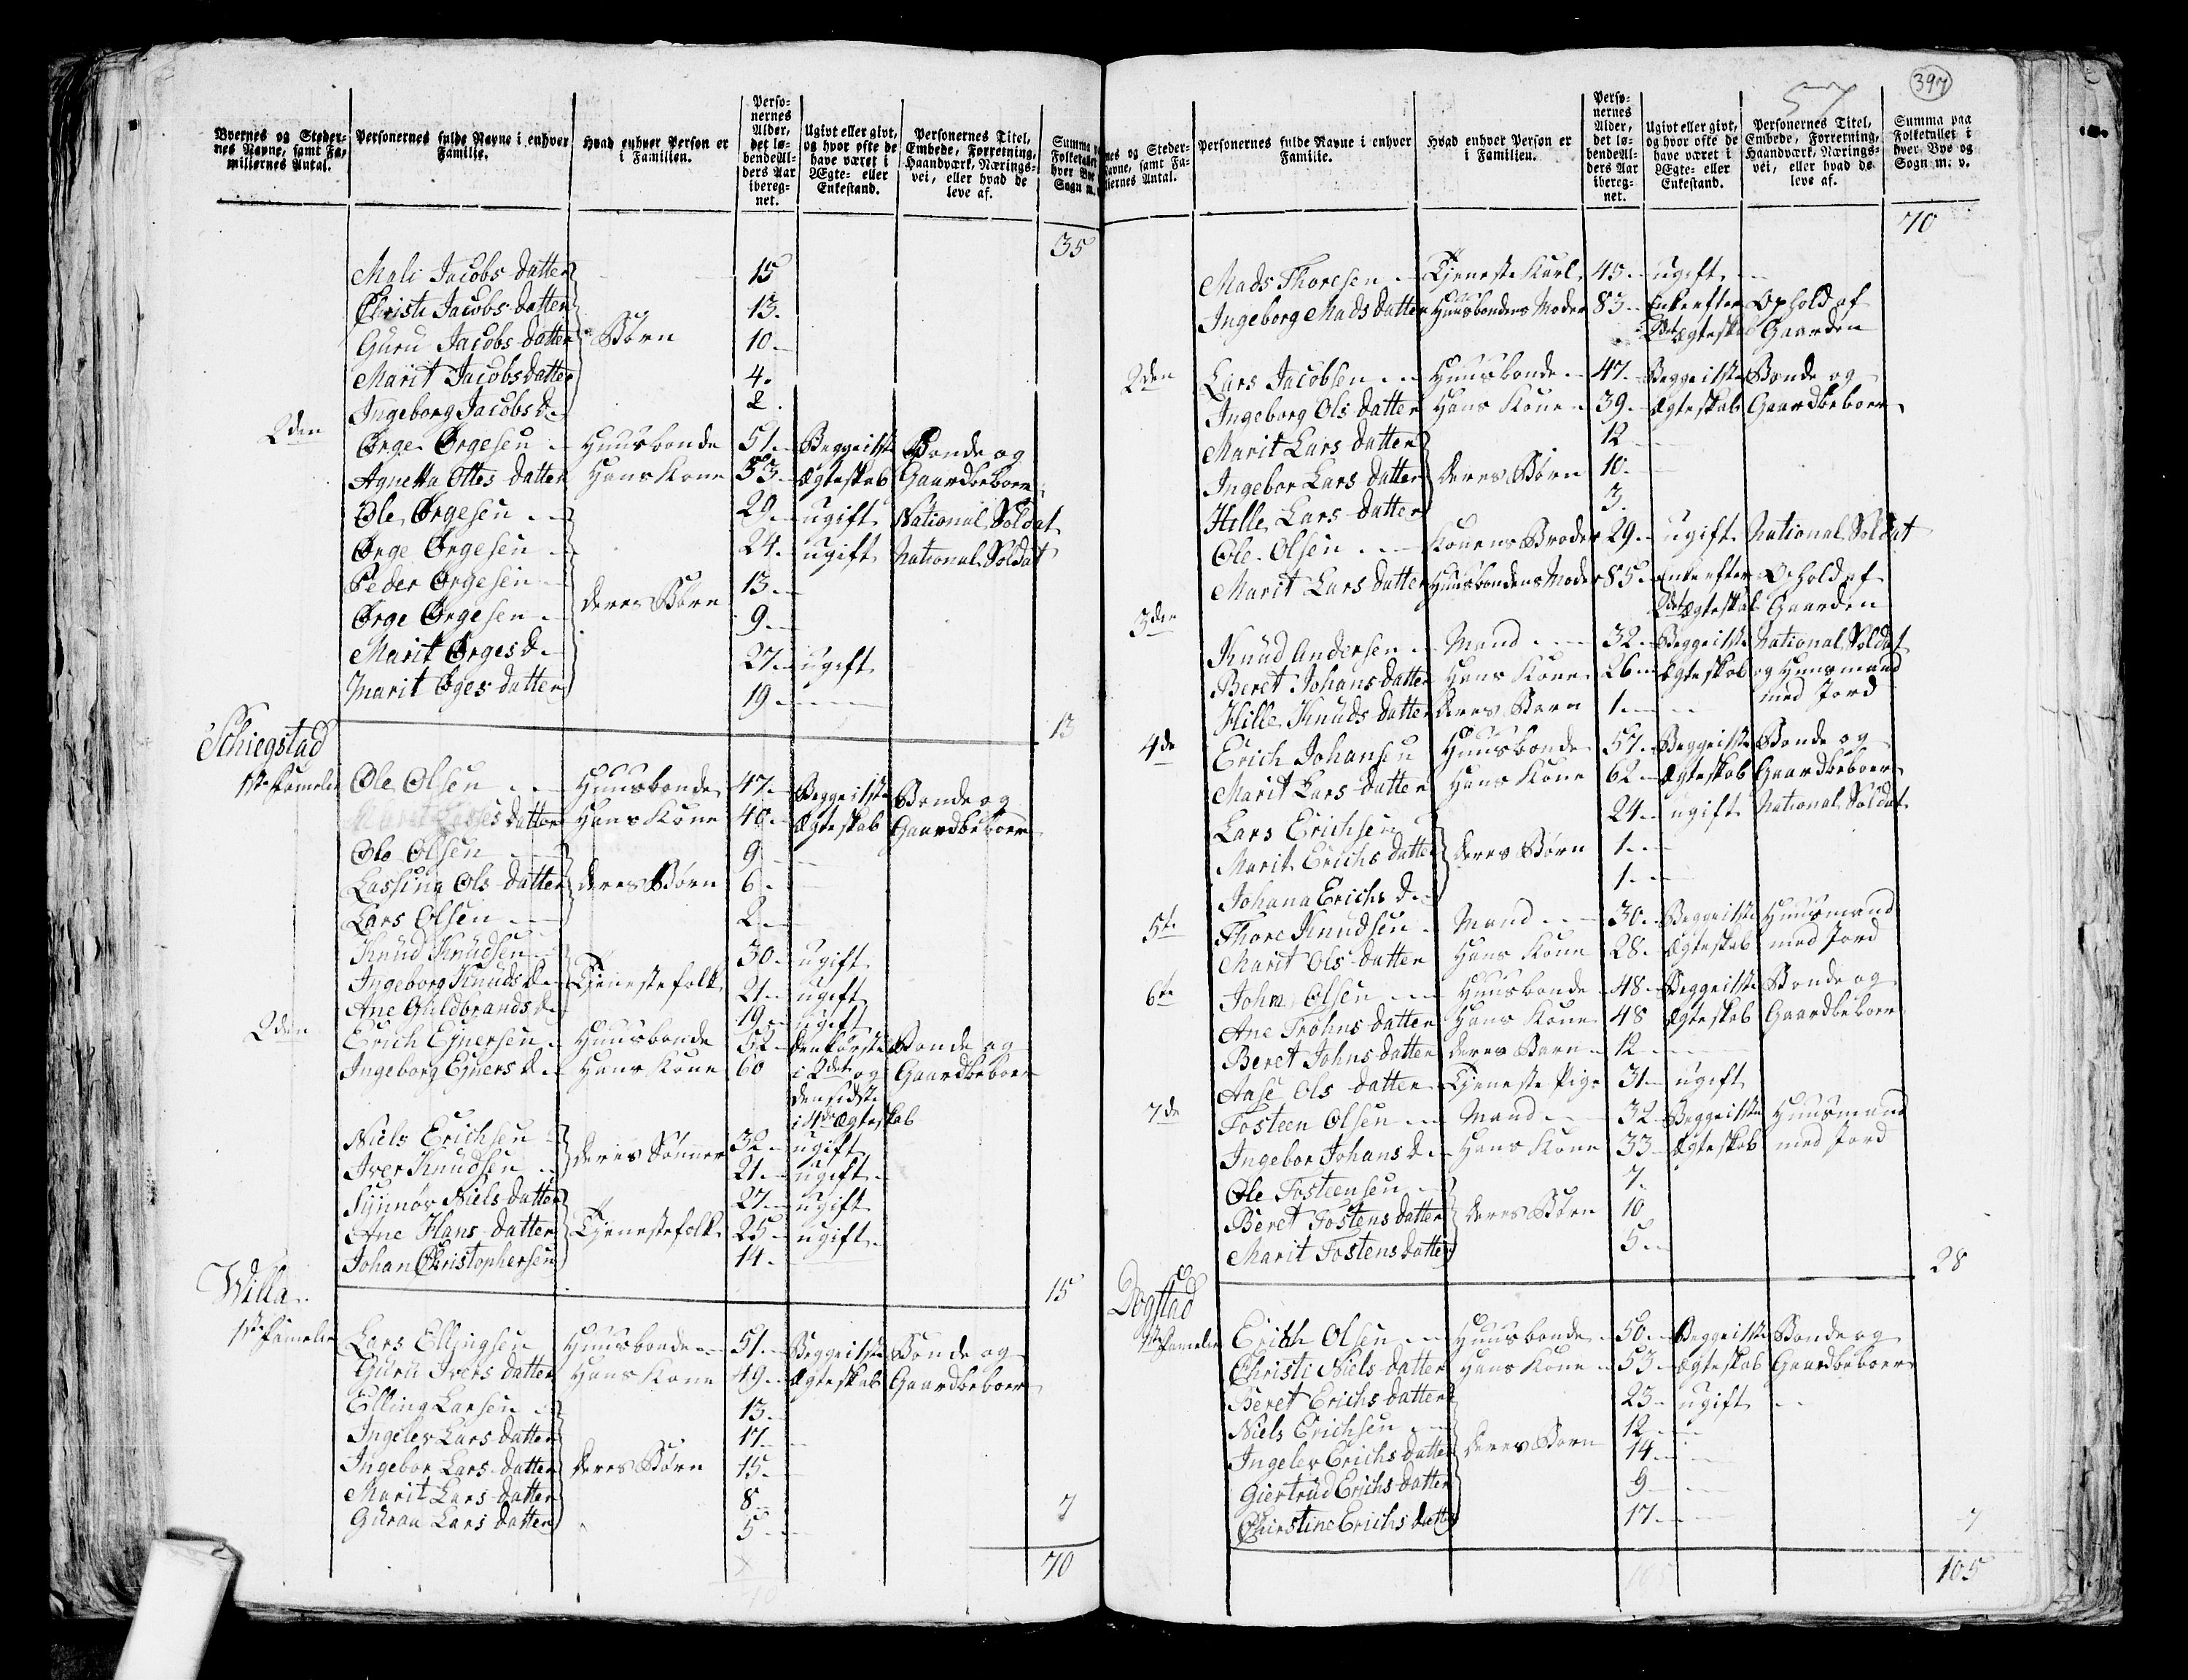 Byernes og Steder-
nes Navne, samt Fa-
miliernes Antal.
Personernes fulde Navne i enhver
Familie.
Hvad enhver Person er
i Familien.
Perso-
nernes
Alder,
det lø-
bende Al-
ders Aar
ibereg-
net.
Ugivt eller givt,
og hvor ofte de
have været i
Ægte- eller
Enkestand.
Personernes Titel,
Embede, Forretning,
Haandværk, Nærings-
vei, eller hvad de
leve af.
Summa
Folketallet
hver Bye
Sogn m.
35
Mali Jacobs datter 15
Christi Jacobs datter 13.
Guru Jacobs datter Børn 10
Marit Jacobsdatter 4.
Ingeborg Jacobs d. 2.
2den Ørge Ørgesen Huusbonde 51 Begge i 1ste Bonde og
Agnetta Ottes datter Hans Kone 53 Ægteskab Gaardbeboer
Ole Ørgesen 29 ugift National Soldat
Ørge Ørgesen 24 ugift National Soldat
Peder Ørgesen 13
Ørge Ørgesen deres Børn 9
Marit Ørges d. 27 ugift
Marit Øges datter 19
Schiegstad 13
1ste Familie Ole Olsen Huusbonde 47 Begge i 1ste Bonde og
datter Hans Kone 40 Ægteskab Gaardbeboer
Ole Olsen 9
Lassina Ols datter deres Børn 6
Lars Olsen 2
Knud Knudsen 30 ugift
Ingeborg Knuds d. Tjenestefolk 21 ugift
Ane Guldbrands d. 19 ugift
2den Erich Ejnersen Huusbonde 52 den første Bonde og
Ingeborg Ejners d. Hans Kone 60 i 2det og Gaardbeboer
den sidste
i 4de Ægteskab
Niels Erichsen 32 ugift
Iver Knudsen deres Sønner 21 ugift
Synnøv Niels datter 27 ugift
Ane Hans datter Tjenestefolk 25 ugift
Johan Christophersen 14
Willa 15
1ste Familie Lars Ellingsen Huusbonde 51 Begge i 1ste Bonde og
Guru Ivers datter Hans Kone 49 Ægteskab Gaardbeboer
Elling Larsen 13
Ingelev Lars datter 17
Ingebor Lars datter deres Børn 15
Marit Lars datter 8 7
Guran Lars datter 5
70
397
57
nes og Steder-
Navne, samt Fa-
liernes Antal.
Personernes fulde Navne i enhver
Familie.
Hvad enhver Person er
i Familien.
Perso-
nernes
Alder,
det lø-
bende Al-
ders Aar
ibereg-
net.
Ugivt eller givt,
og hvor ofte de
have været i
Ægte- eller
Enkestand.
Personernes Titel,
Embede, Forretning,
Haandværk, Nærings-
vei, eller hvad de
leve af.
Summa paa
Folketallet i
hver Bye og
Sogn m. v.
70
Mads Thoresen Tjeneste Karl 45 ugift
Ingeborg Mads datter Huusbondens Moder 83 Enke efter Ophold af
Ægteskab Gaarden
2den Lars Jacobsen Huusbonde 47 Begge i 1ste Bonde og
Ingeborg Ols datter Hans Kone 39 Ægteskab Gaardbeboer
Marit Lars datter 12
Ingebor Lars datter deres Børn 10
Hille Lars datter 3
Ole Olsen Konens Broder 29 ugift National Soldat
Marit Lars datter Huusbondens Moder 85 Enke efter Ophold af
Ægteskab Gaarden
3die Knud Andersen Mand 32 Begge i 1ste National Soldat
Beret Johans datter Hans Kone 26 Ægteskab og Huusmand
Hille Knuds datter deres Barn 1 med Jord
4de Erich Johansen Huusbonde 57 Begge i 1ste Bonde og
Marit Lars datter Hans Kone 62 Ægteskab Gaardbeboer
Lars Erichsen 24 ugift National Soldat
Marit Erichs datter deres Børn 1
Johana Erichs d. 1
5te Thore Knudsen Mand 30 Begge i 1ste Huusmand
Marit Ols datter Hans Kone 28 Ægteskab med Jord
6te John Olsen Huusbonde 48 Begge i 1ste Bonde og
Ane Trohns datter Hans Kone 48 Ægteskab Gaardbeboer
Beret Johns datter deres Barn 12
Aase Ols datter Tjeneste Pige 31 ugift
7de Tosteen Olsen Mand 32 Begge i 1ste Huusmand
Ingebor Johans d. Hans Kone 33 Ægteskab med Jord
Ole Tosteensen 7
Beret Tostens datter deres Børn 10
Marit Tostens datter 5
28
Dogstad
1ste Familie Erich Olsen Huusbonde 50 Begge i 1ste Bonde og
Christi Niels datter Hans Kone 53 Ægteskab Gaardbeboer
Beret Erichs datter 23 ugift
Niels Erichsen 12
Ingelev Erichs datter deres Børn 14
Giertrud Erichs datter 9
Christine Erichs datter 17 7
105